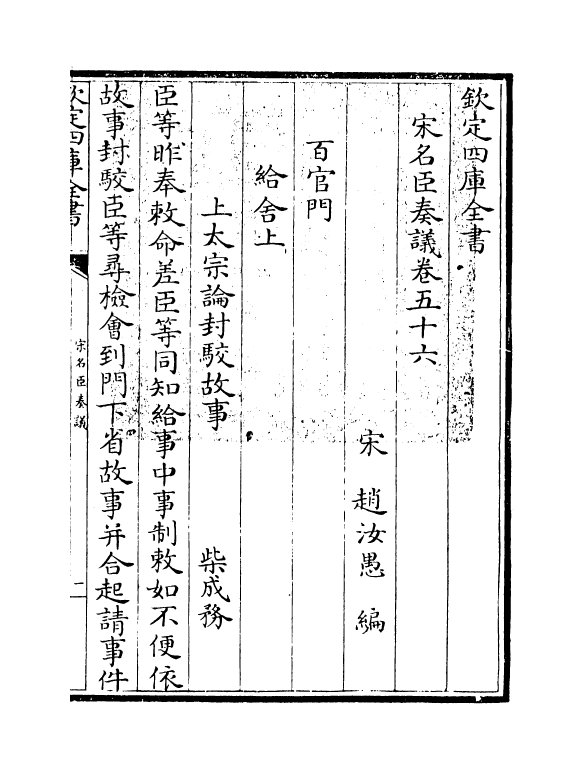 欽定四庫全書
宋名臣奏議卷五十六
宋 趙汝愚 編
百官門
給舍上
上太宗論封駮故事 柴成務
臣等昨奉敕命差臣等同知給事中事制敕如不便依
故事封駮臣等尋檢會到門下省故事并合起請事件
欽定四庫全書
宋名臣奏議